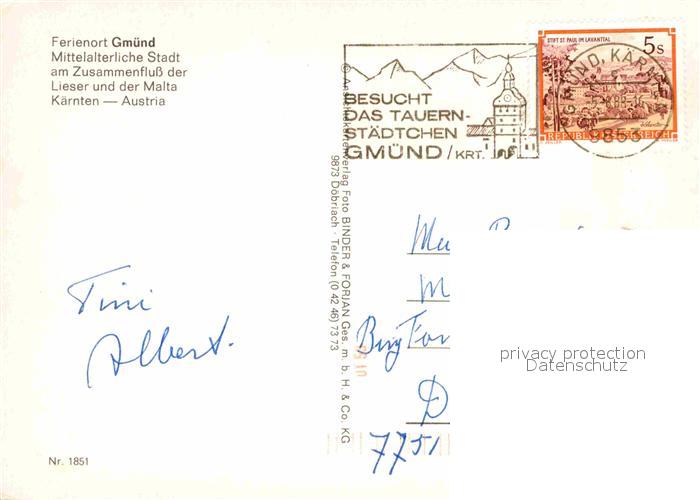 Ferienort Gmünd
Mittelalterliche Stadt
am Zusammenfluß der
Lieser und der Malta
Kärnten — Austria
BESUCHT
DAS TAUERN-
STÄDTCHEN
GMÜND / KRT.
STIFT ST. PAUL IM LAVANTTAL
5 S
REPUBLIK ÖSTERREICH
GMÜND, KÄRNTEN
9853
© Ansichtskartenverlag Foto BINDER & FORJAN Ges. m. b. H. & Co. KG
9873 Döbriach · Telefon (0 42 46) 73 73
Tini
Albert.
M
D
7751
privacy protection
Datenschutz
Nr. 1851